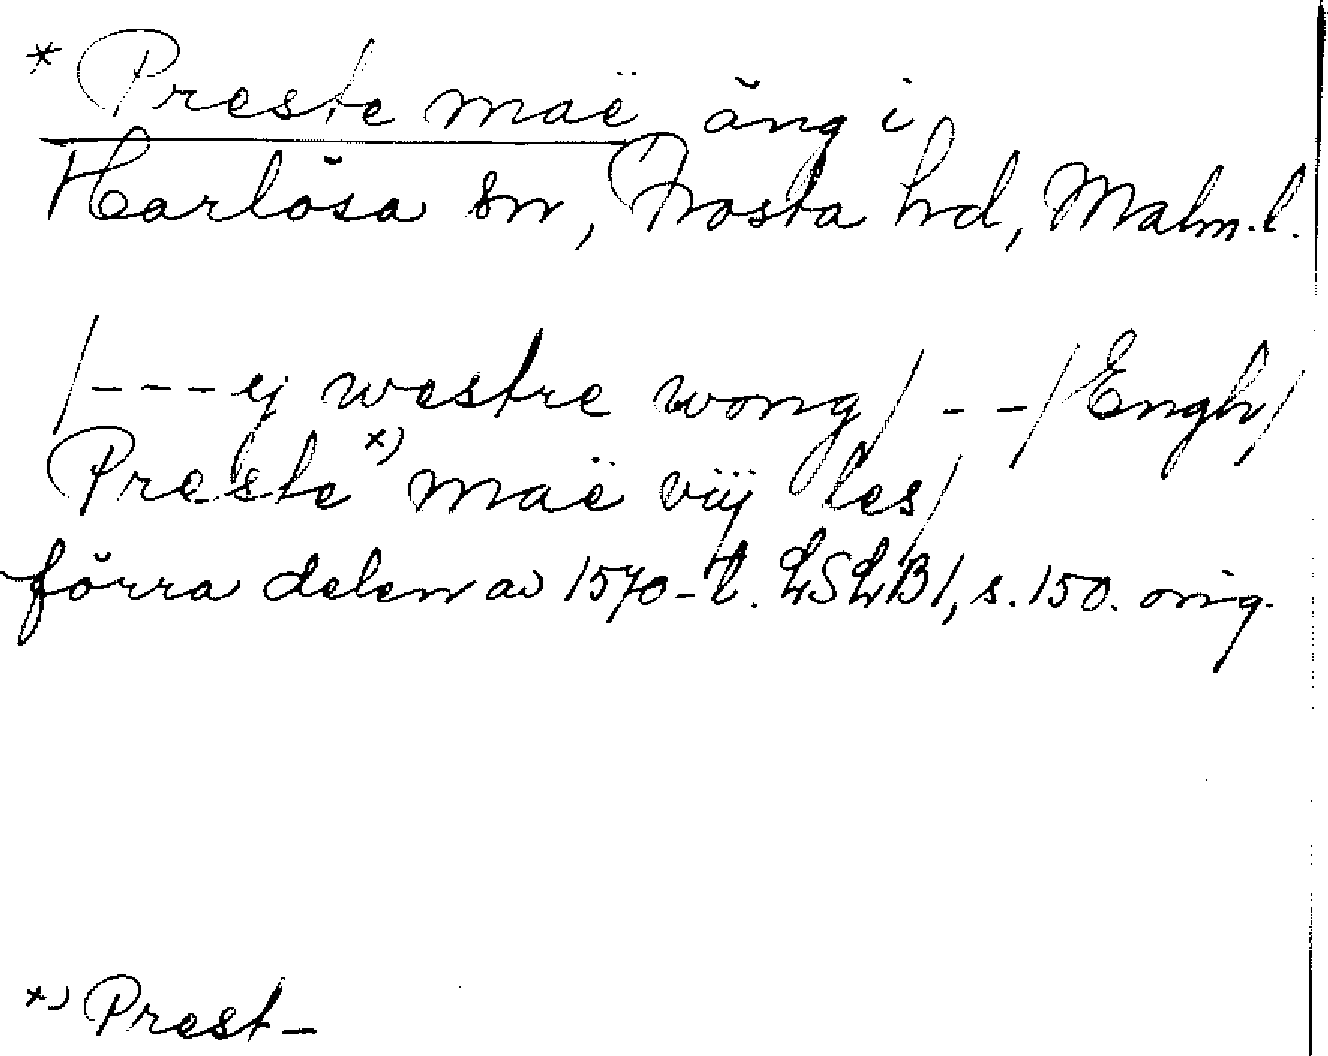 * Preste maë, äng i
Harlösa sn, Frosta hd, Malm.l.
/--- ij westre wong/ --/Engh/
Preste *) maë vÿ les/
förra delen av 1570-t. LSLB1, s.150. orig.
*) Prest-